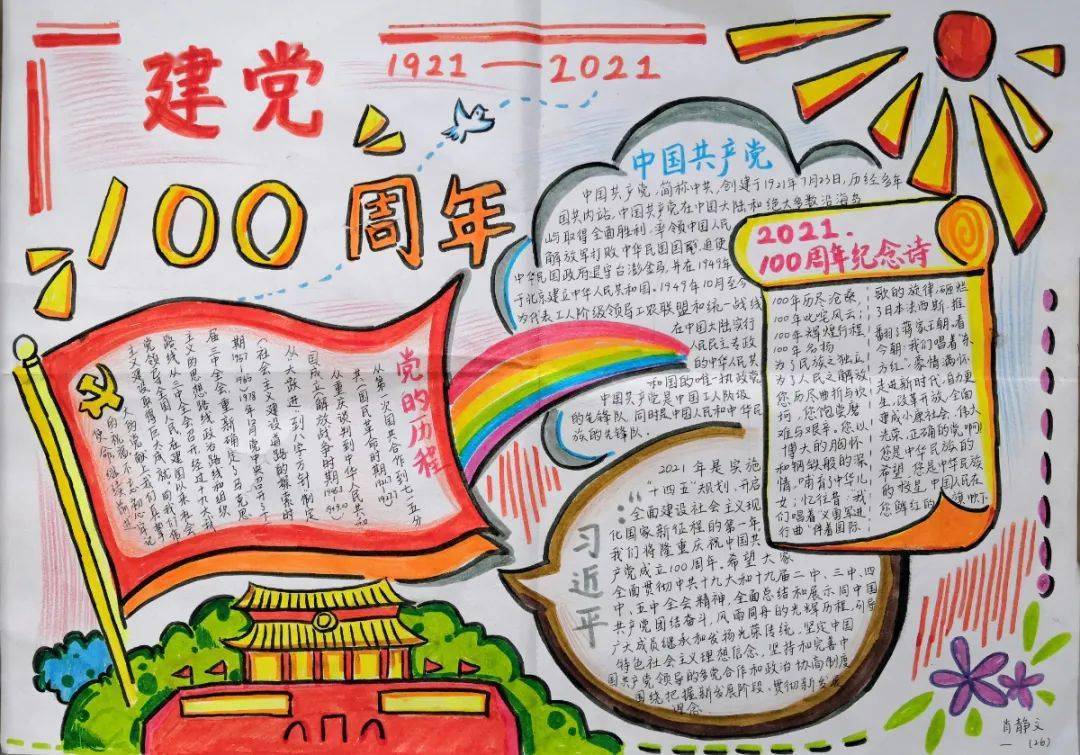 建党
1921—2021
100周年
中国共产党
中国共产党,简称中共,创建于1921年7月23日,历经多年
国共内战,中国共产党在中国大陆和绝大多数沿海岛
屿取得全面胜利,率领中国人民
解放军打败中华民国国军,迫使
中华民国政府退守台澎金马,并在1949年
于北京建立中华人民共和国。1949年10月至今
为代表工人阶级领导工农联盟和统一战线
在中国大陆实行
人民民主专政
的中华人民共
和国的唯一执政党
中国共产党是中国工人阶级
的先锋队,同时是中国人民和中华民
族的先锋队.
2021.
100周年纪念诗
100年历尽沧桑,
100年叱咤风云;
100年辉煌行程,
100年名扬
为了民族之独立
为了人民之解放
您历尽曲折与坎
坷,您饱尝磨
难与艰辛。您以
博大的胸怀
和钢铁般的深
情哺育中华儿
女;忆往昔:我
们唱着“义勇军进
行曲”伴着国际
歌的旋律,砸烂
了日本法西斯,推
翻了蒋家王朝。看
今朝:我们唱着“东
方红”,豪情满怀
走进新时代,自力更
生,改革开放,全面
建成小康社会。伟大
光荣、正确的党啊!
您是中华民族的
希望,您是中华民族
的救星,中国人民在
您鲜红的旗帜下
党的历程
从第一次国共合作到七七五分
共(国民革命时期1924-1927)
从重庆谈判到中华人民共和
国成立(解放战争时期1945
从“大跃进”到“八字方针”制定
(社会主义建设道路的探索时
期1957-1966
1978年12月党中央召开了十一
届三中全会,重新确定了马克思
主义的思想路线政治路线和组织
路线从三中全会召开,经过十九大,我
党领导全国人民在建国以来社会
主义建设取得巨大成就,就向我们伟
大的祝福献上我们最真挚
习近平
2021年是实施
“十四五”规划、开启
全面建设社会主义现
代化国家新征程的第一年,
我们将隆重庆祝中国共
产党成立100周年。希望大家
全面贯彻中共十九大和十九届二中、三中、四
中、五中全会精神,全面总结和展示同中国
共产党团结奋斗、风雨同舟的光辉历程,引导
广大成员继承和发扬光荣传统,坚定中国
特色社会主义理想信念,坚持和完善中
国共产党领导的多党合作和政治协商制度
围绕把握新发展阶段、贯彻新发展
理念
肖静文
一 (26)